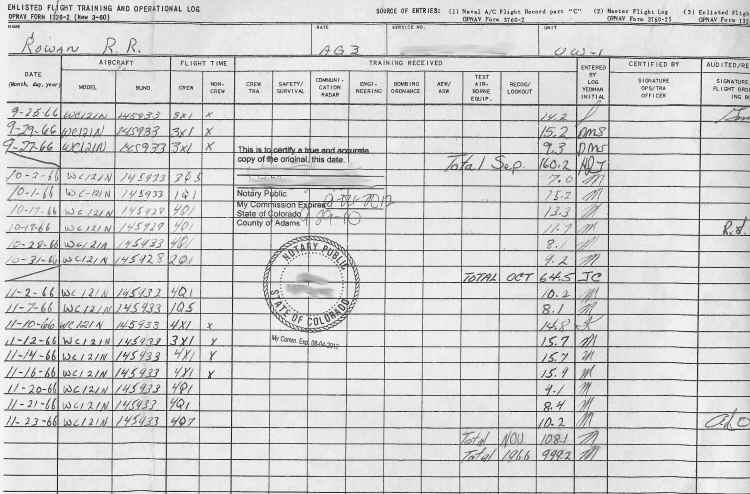 ENLISTED FLIGHT TRAINING AND OPERATIONAL LOG
OPNAV FORM 1326-2 (New 3-60)
SOURCE OF ENTRIES: (1) Naval A/C Flight Record part "C" (2) Master Flight Log (3) Enlisted Fligh
OPNAV Form 3760-2 OPNAV Form 3760-25 OPNAV Form
NAME RATE SERVICE NO. UNIT
Rowan R.R. AG3 VW-1
DATE (Month, day, year) AIRCRAFT FLIGHT TIME TRAINING RECEIVED ENTERED BY LOG YEOMAN INITIAL CERTIFIED BY AUDITED/RE
MODEL BUNO CREW NON-CREW CREW TRA SAFETY/SURVIVAL COMMUNI-CATION RADAR ENGI-NEERING BOMBING ORDNANCE AEW/ASW TEST AIR-BORNE EQUIP. RECOG/LOOKOUT SIGNATURE OPS/TRA OFFICER SIGNATURE FLIGHT ORDE ING BO
9-25-66 WC121N 145933 X1 X 14.2
9-29-66 WC121N 145933 3X1 X 15.2 DMS
9-27-66 WC121N 145933 3X1 X 9.3 DMS
This is to certify a true and accurate
copy of the original, this date.
Total Sep 160.2
10-2-66 WC121N 145933 7.0
Notary Public
10-1-66 WC-121N 145933 1Q1
My Commission Expires
10-17-66 WC121N 145929 4Q1 13.3
State of Colorado
County of Adams
WC121N 145929 4Q1 11.7
10-28-66 WC121N 145933 4Q1 8.1
10-31-66 WC121N 145928 2Q1 9.2
NOTARY PUBLIC
STATE OF COLORADO
TOTAL OCT 64.5 JC
11-2-66 WC121N 145933 4Q1 10.2
11-7-66 WC121N 145933 1Q5 8.1
11-10-66 WC121N 145933 4X1 X 14.8
My Comm. Exp. 08-04-2012
11-12-66 WC121N 145933 3X1 X 15.7
11-14-66 WC121N 145933 4X1 X 15.7
11-16-66 WC121N 145933 4X1 X 15.9
11-20-66 WC121N 145933 4Q1 9.1
11-21-66 WC121N 145933 4Q1 8.4
11-23-66 WC121N 145933 4Q7 10.2
Total NOV 108.1
Total 1966 999.2